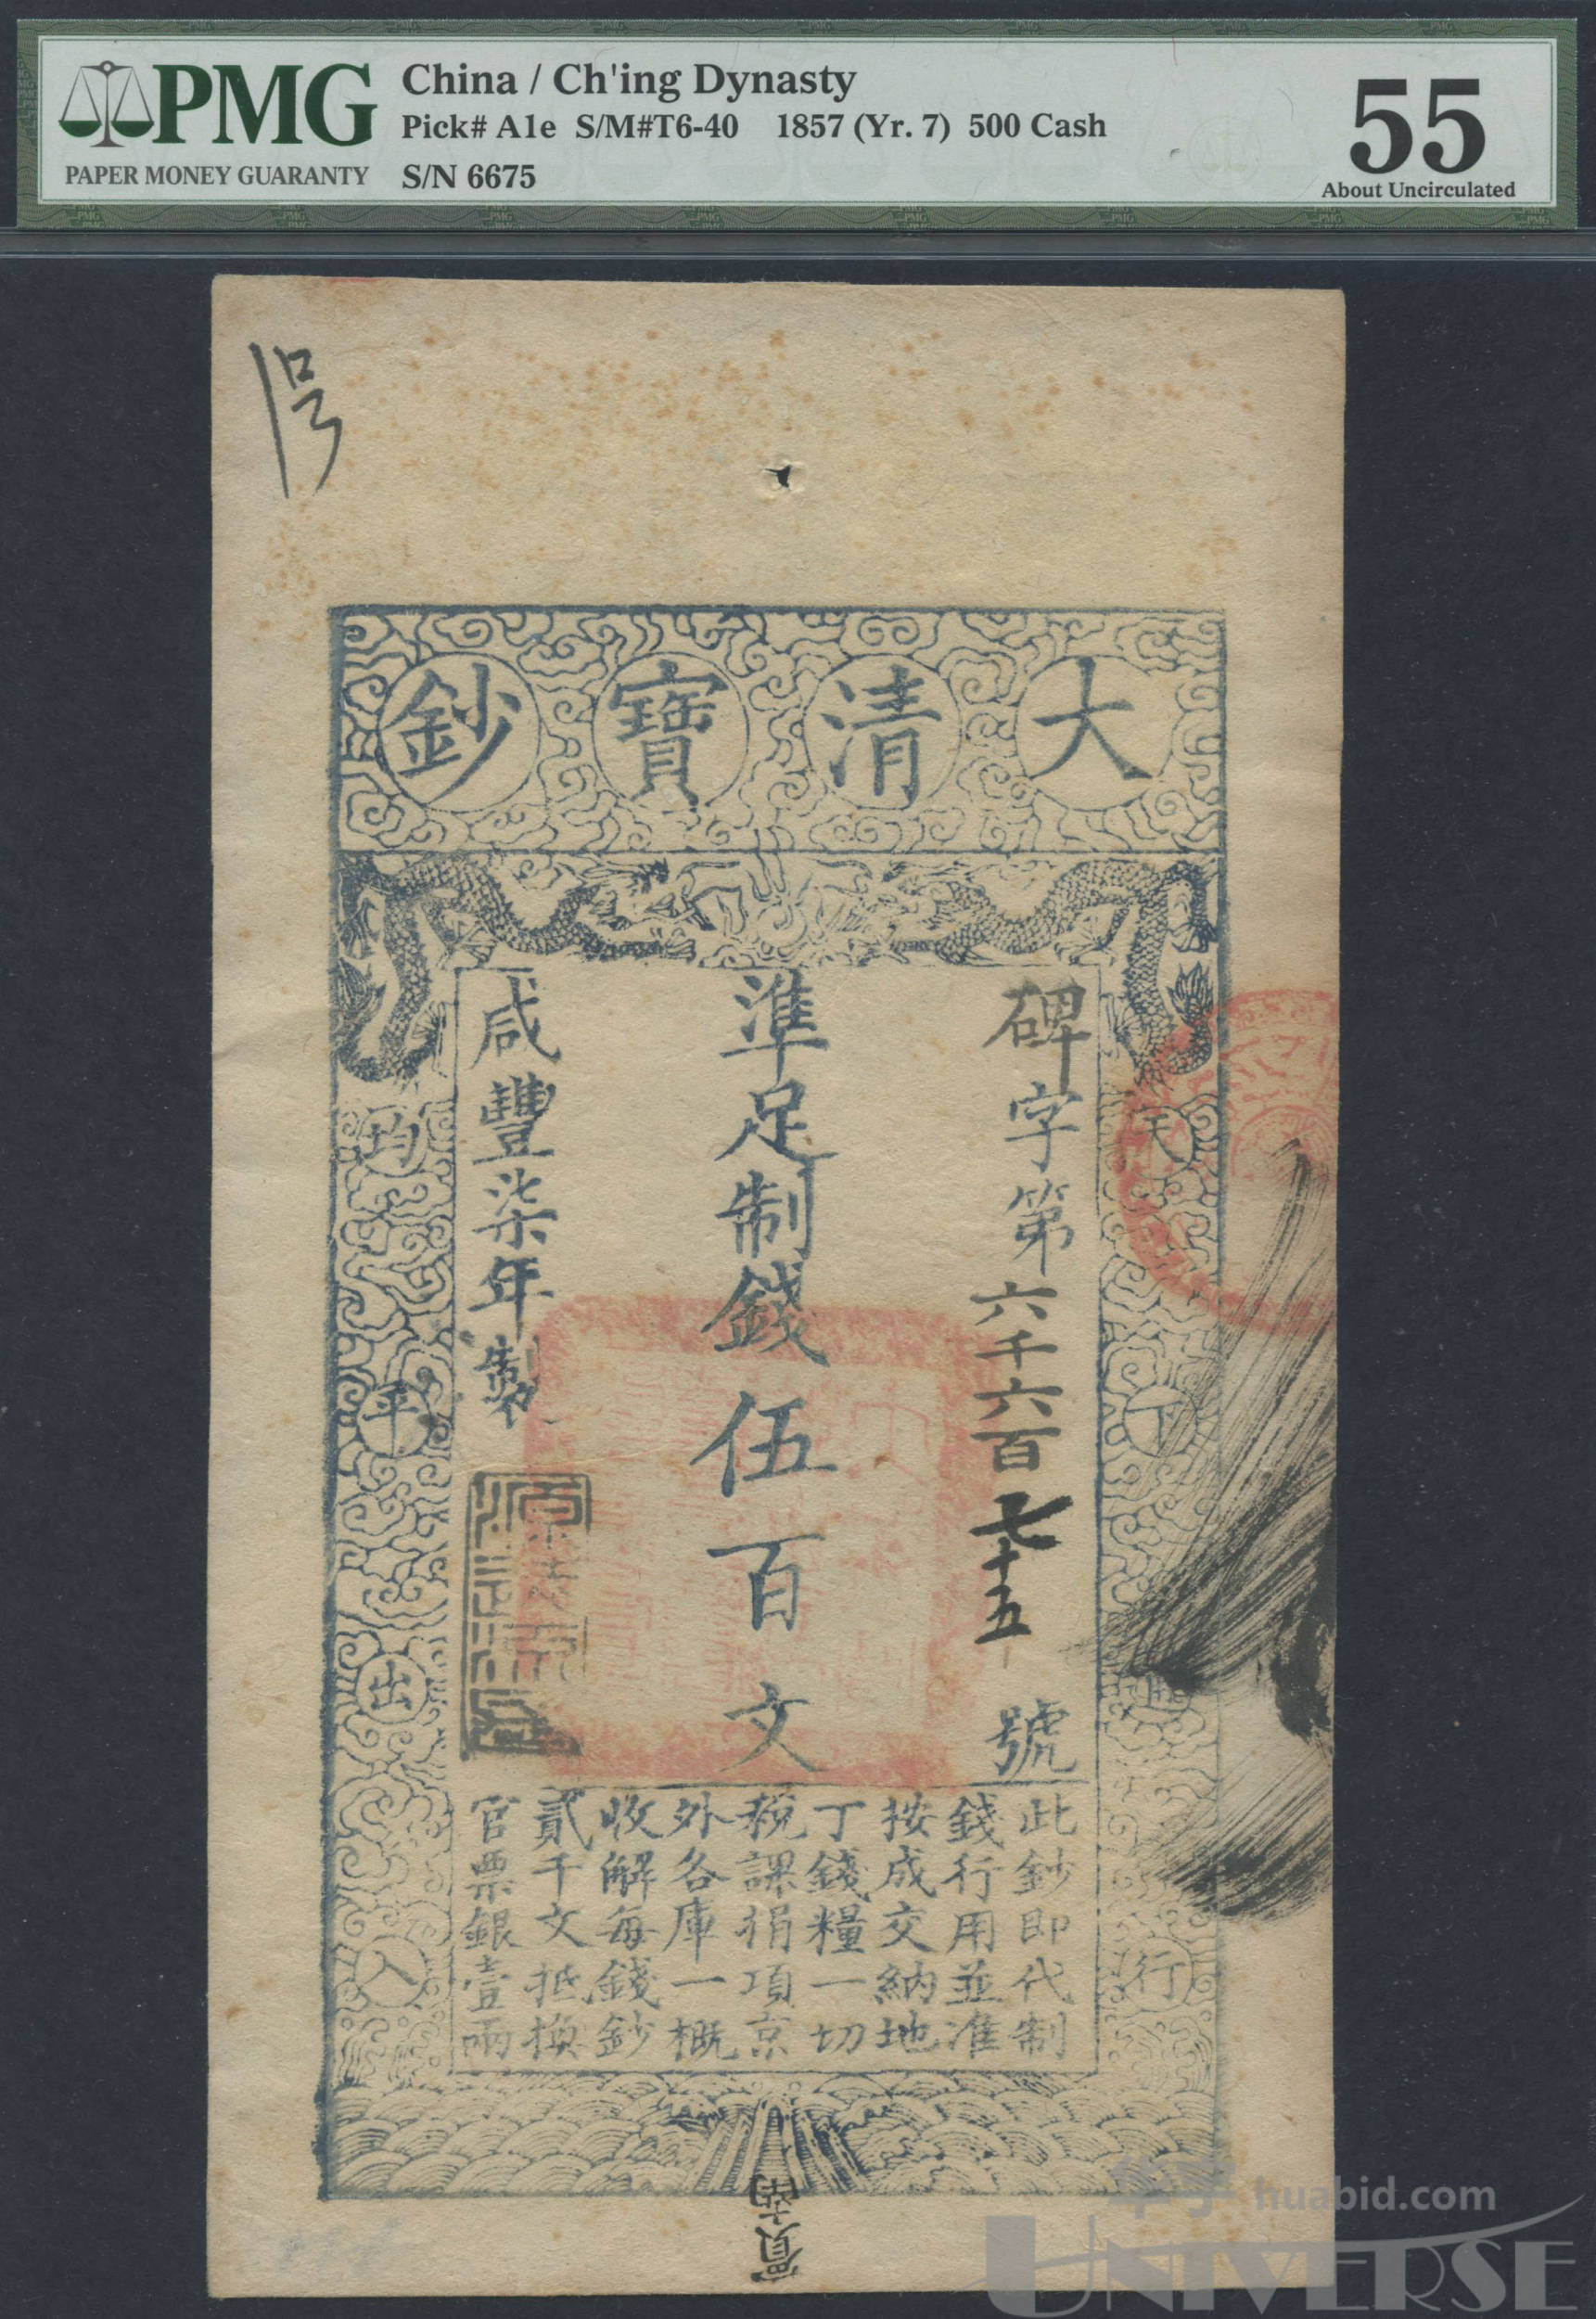 PMG
PAPER MONEY GUARANTY
China / Ch'ing Dynasty
Pick# A1e S/M#T6-40 1857 (Yr. 7) 500 Cash
S/N 6675
55
About Uncirculated
大清寶鈔
碑字第六千六百七十五號
準足制錢伍百文
咸豐柒年製
天下通行
均平出入
此鈔即代制
錢行用並准
按成交納地
丁錢糧一切
稅課捐項京
外各庫一概
收解每錢鈔
貳千文抵換
官票銀壹兩
华宇 huabid.com
UNIVERSE